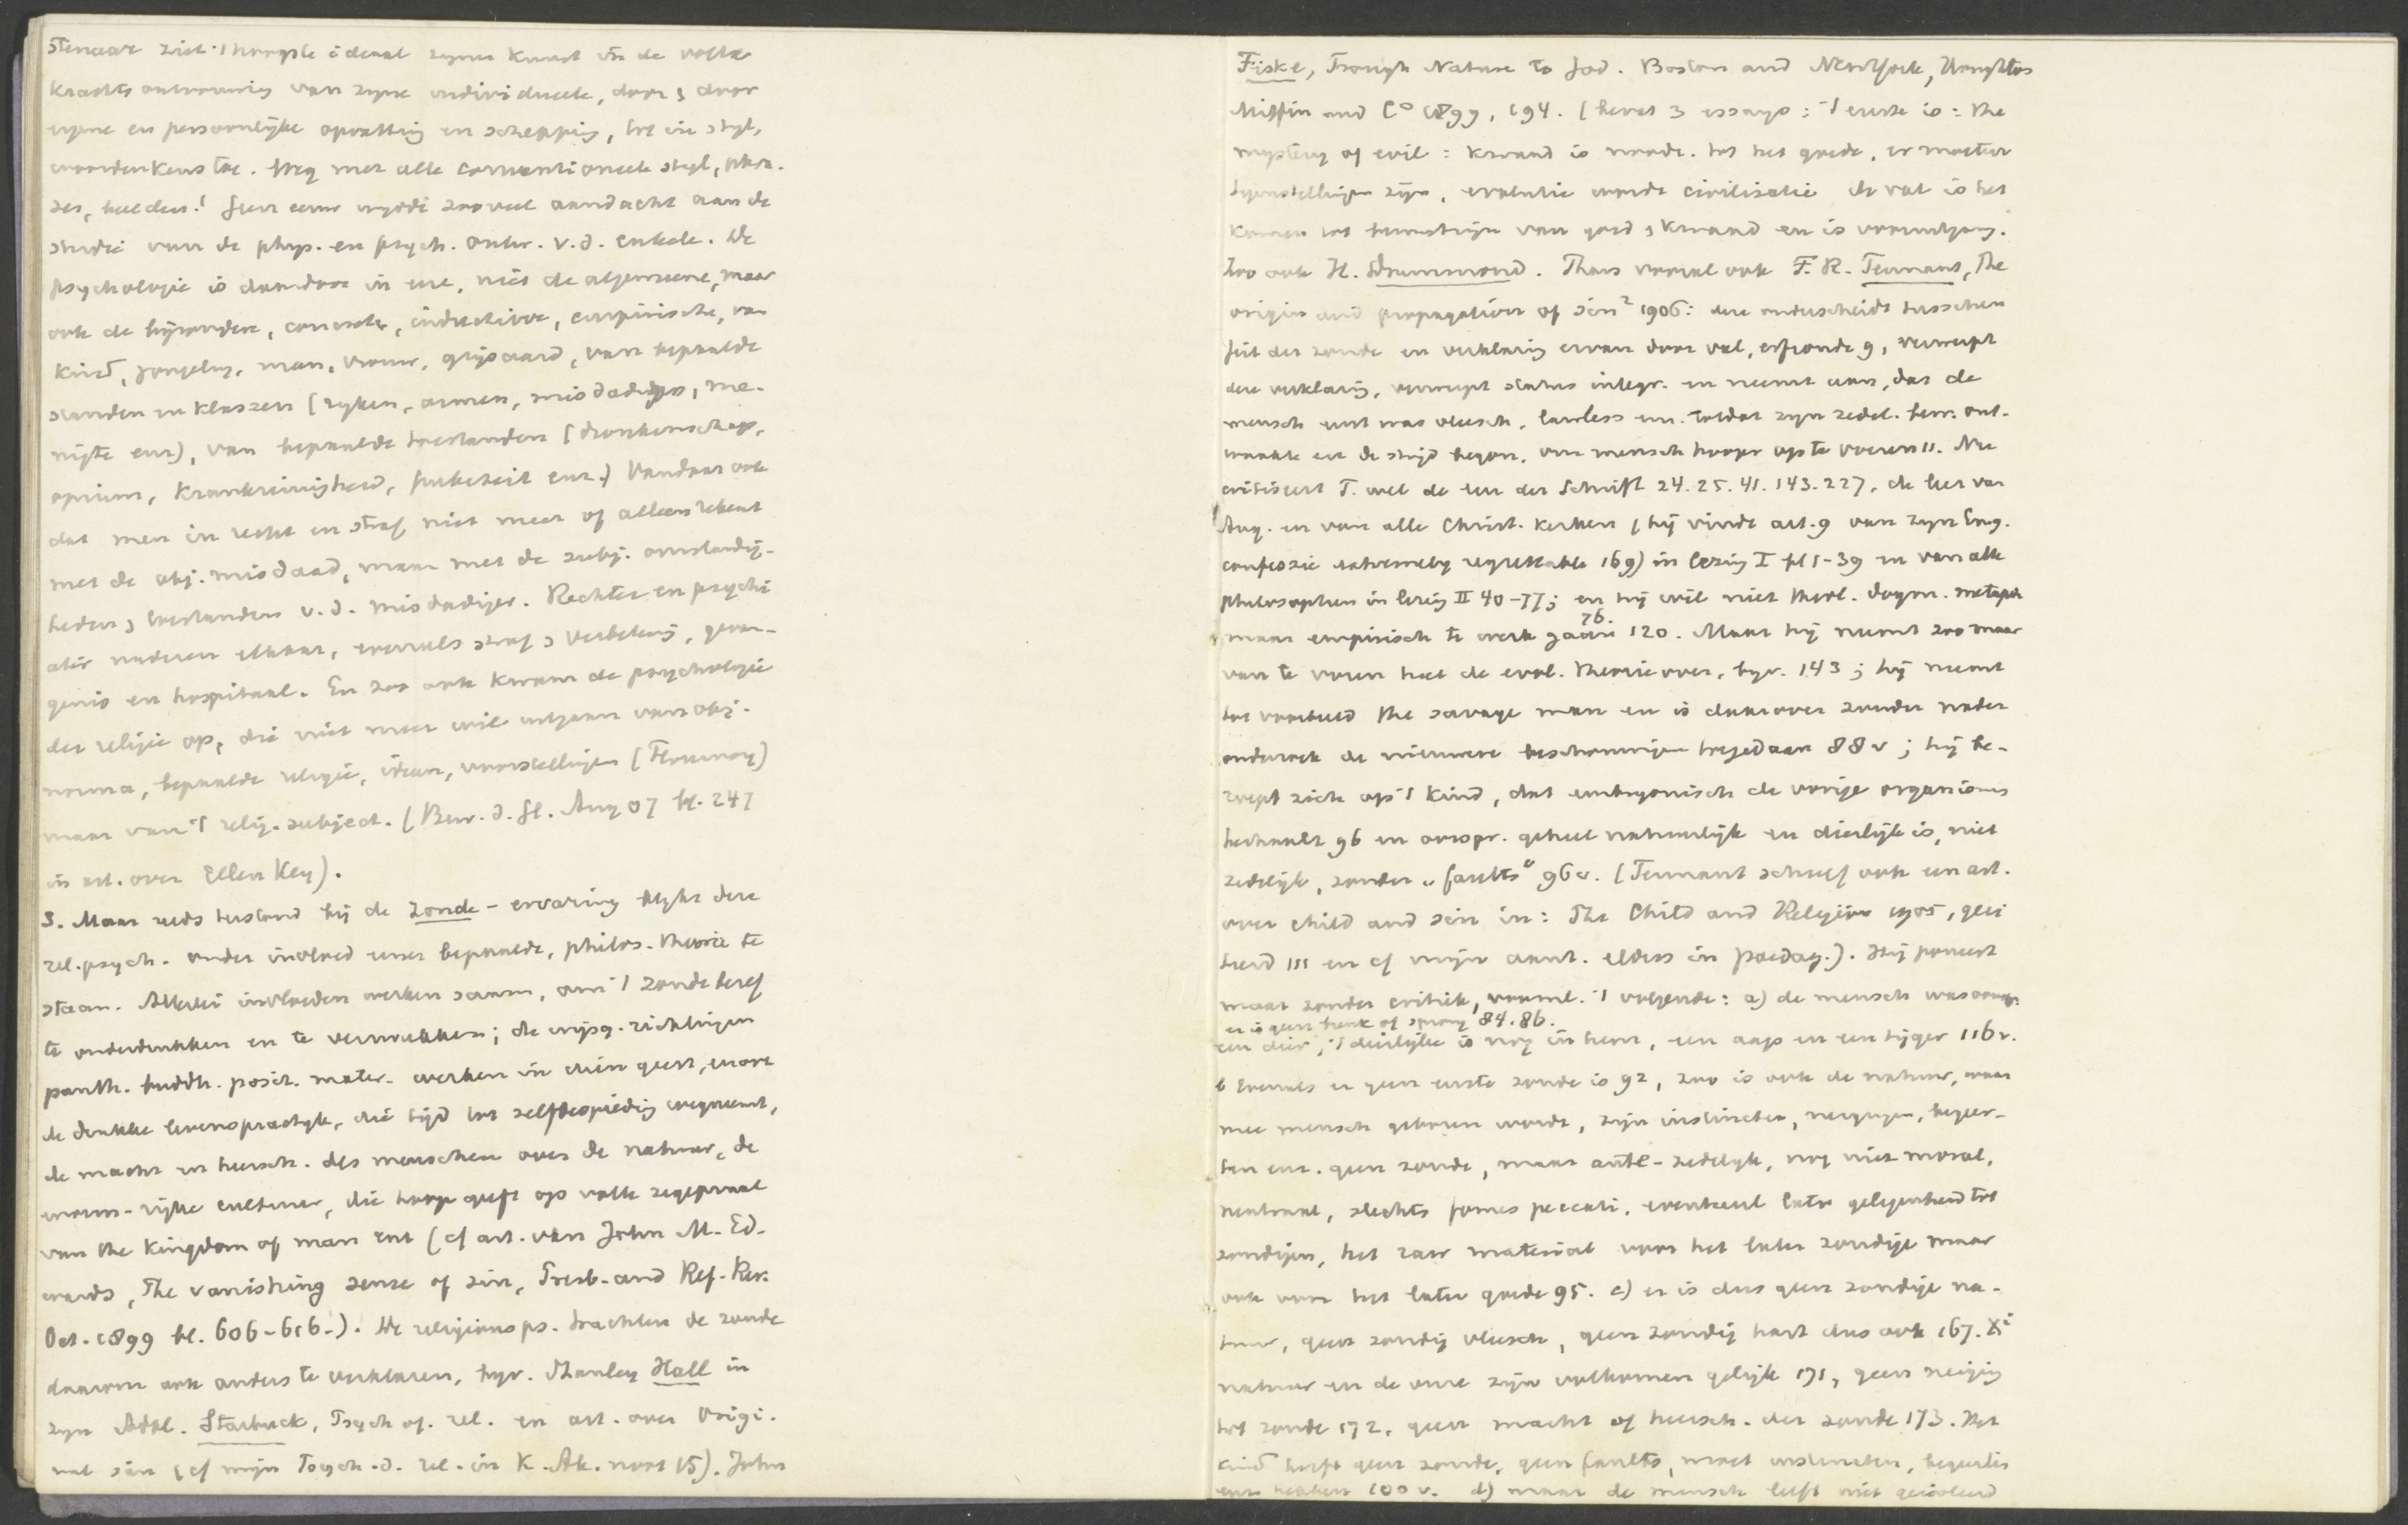 stenaar ziet 't hoogste ideaal zijner kunst in de volle
krachtsontvouwing van zijne individueele, door & door
eigene en persoonlijke opvatting en schepping, tot in stijl,
woordenkeus toe. Weg met alle conventioneele stijl, phra-
zes, beelden! Geen eeuw wijdde zooveel aandacht aan de
studie van de phys. en psych. ontw. v.d. enkele. De
psychologie is daardoor in eere, niet de algemeene, maar
ook de bijzondere, concrete, inductieve, empirische, van
kind, jongeling, man, vrouw, grijsaard, van bepaalde
standen en klassen (rijken, armen, misdadigers, me-
nigte enz), van bepaalde toestanden (dronkenschap,
opium, krankzinnigheid, puberteit enz.) Vandaar ook
dat men in recht en straf niet meer of alleen rekent
met de obj. misdaad, maar met de subj. omstandig-
heden & toestanden v.d. misdadiger. Rechter en psychi
ater naderen elkaar, evenals straf & verbetering, gevan-
genis en hospitaal. En zoo ook kwam de psychologie
der religie op, die niet meer wil uitgaan van obj.
norma, bepaalde religie, ideeën, voorstellingen (Flournoy)
maar van 't relig. subject. (Bew. d. G. Aug 07 bl. 247
in art. over Ellen Key).
3. Maar reeds terstond bij de zonde-ervaring blijkt deze
rel.psych. onder invloed eener bepaalde, philos. theorie te
staan. Allerlei invloeden werken saam, om 't zondebesef
te onderdrukken en te verzwakken; de wijsg. richtingen
panth. buddh. posit. mater. werken in dien geest, evenzoo
de drukke levenspractijk, die tijd tot zelfbespieding wegneemt,
de macht en heersch. des menschen over de natuur, de
 cultuur, die hoop geeft op volle zegepraal
van the Kingdom of man enz (cf art. van John M. Ed-
wards, The vanishing sense of sin, Presb. and Ref. Rev.
Oct. 1899 bl. 606-616-). De religionsps. trachten de zonde
daarom ook anders te verklaren, bijv. Stanley Hall in
zijn Adol. Starbuck, Psych of. rel. en art. over Origi-
nal sin (cf mijn Psych. d. rel. in K. Ak. noot 15). John
Fiske, Trough Nature to God. Boston and NewYork, Houghton
Mifflin and Co 1899, 194. (bevat 3 essays: 't eerste is: the
mystery of evil: kwaad is noodz. tot het goede, er moeten
tegenstellingen zijn, evolutie wordt civilisatie de val is het
komen tot bewustzijn van goed & kwaad en is vooruitgang.
Zoo ook H. Drummond. Thans vooral ook F.R. Tennant, The
origin and propagation of sin² 1906: deze onderscheidt tusschen
feit der zonde en verklaring ervan door val, erfzonde 9, verwerpt
deze verklaring, verwerpt status integr. en neemt aan, dat de
mensch eerst was vleesch, lawless enz. totdat zijn zedel. bew. ont-
waakte en de strijd begon, om mensch hooger op te voeren 11. Nu
critiseert T. wel de leer der Schrift 24. 25. 41. 143. 227, de leer van
Aug. en van alle Christ. kerken (hij vindt art. 9 van zijn Eng.
confessie extremely regrettable 169) in lezing I bl 1-39 en van alle
philosophen in lezing II 40-77; en hij wil niet theol. dogm. metaph
maar empirisch te werk gaan 76. 120. Maar hij neemt zoo maar
van te voren heel de evol. theorie over, bijv. 143; hij neemt
tot voorbeeld the savage man en is daarover zonder nader
onderzoek de nieuwere beschouwingen toegedaan 88 v; hij be-
roept zich op 't kind, dat embryonisch de vorige organismen
herhaalt 96 en oorspr. geheel natuurlijk en dierlijk is, niet
zedelijk, zonder „faults" 96v. (Tennant schreef ook een art.
over child and sin in: The Child and Religion 1905, geci
teerd 111 en cf mijn aant. elders in paedag.). Hij poneert
maar zonder critiek, vooral 't volgende: a) de mensch was oorspr.
er is geen breuk of sprong 84. 86.
een dier, 't dierlijke is nog in hem, een aap en een tijger 116v.
b evenals er geen eerste zonde is 92, zoo is ook de natuur, waar
mee mensch geboren wordt, zijn instincten, neigingen, begeer-
ten enz. geen zonde, maar ante-zedelijk, nog niet moral,
neutraal, slechts fomes peccati, eventueel later gelegenheid tot
zondigen, het raw material voor het later zondige maar
ook voor het later goede 95. c) er is dus geen zondige na-
tuur, geen zondig vleesch, geen zondig hart dus ook 167. X's
natuur en de onze zijn volkomen gelijk 171, geen neiging
tot zonde 172, geen macht of heersch. der zonde 173. Het
kind heeft geen zonde, geen faults, moet instincten, begeerten
enz. hebben 100 v. d) maar de mensch leeft niet geïsoleerd